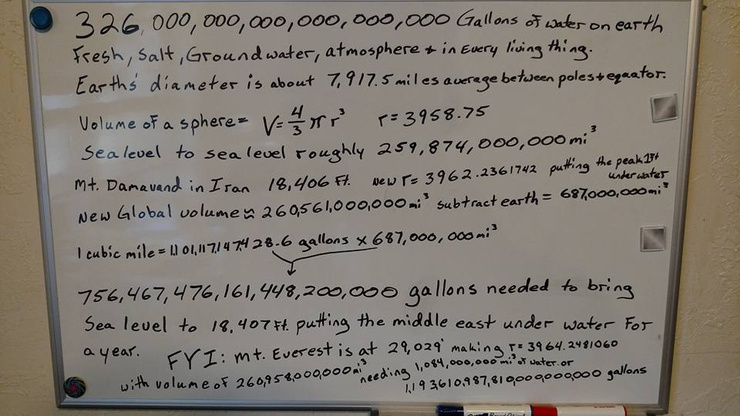 326,000,000,000,000,000,000 Gallons of water on earth
Fresh, Salt, Groundwater, atmosphere + in Every living thing.
Earths' diameter is about 7,917.5 miles average between poles + equator.
Volume of a sphere = V = 4/3 π r³ r = 3958.75
Sea level to sea level roughly 259,874,000,000 mi³
Mt. Damavand in Iran 18,406 Ft. new r = 3962.2361742 putting the peak 1ft underwater
New Global volume ≈ 260,561,000,000 mi³ subtract earth = 687,000,000 mi³
1 cubic mile = 1,101,117,147,428.6 gallons x 687,000,000 mi³
756,467,476,161,448,200,000 gallons needed to bring
Sea level to 18,407 Ft. putting the middle east under water For
a year. FYI: Mt. Everest is at 29,029' making r = 3964.2481060
with volume of 260,958,000,000 mi³ needing 1,084,000,000 mi³ of water. or
1,193,610,987,810,000,000,000 gallons